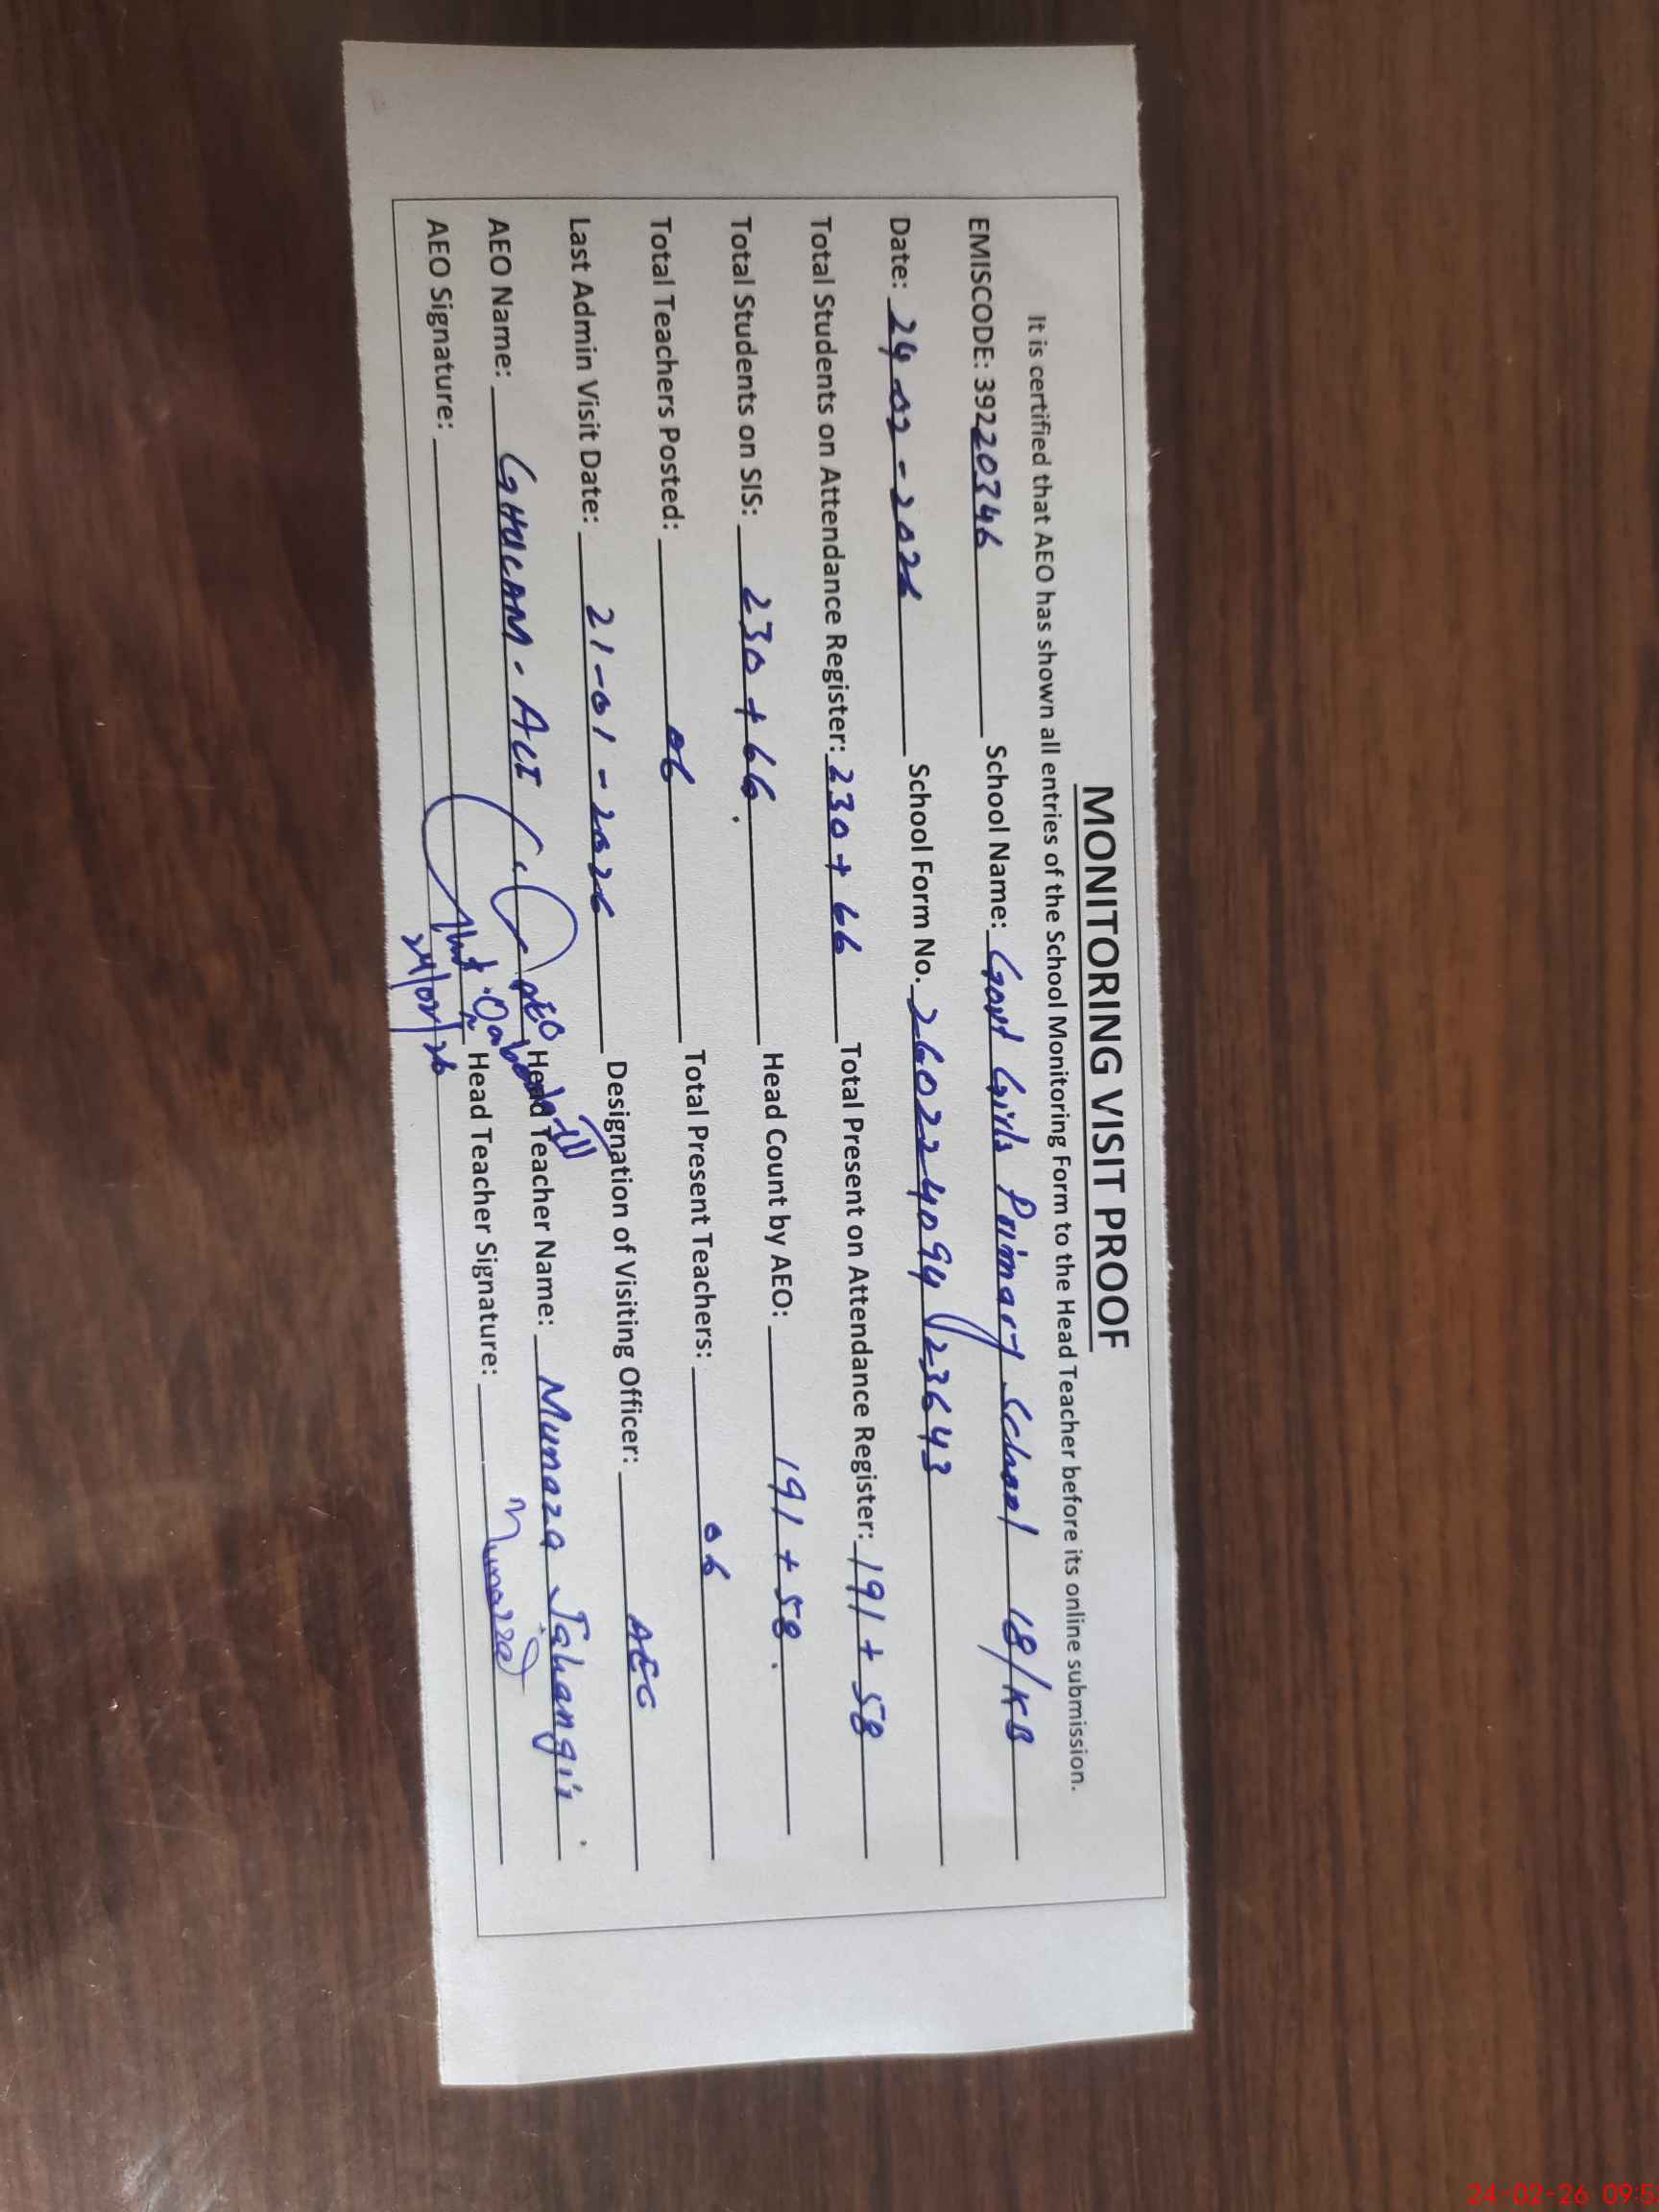 MONITORING VISIT PROOF
It is certified that AEO has shown all entries of the School Monitoring Form to the Head Teacher before its online submission.
EMISCODE: 39220346 School Name: Govt Girls Primary School 18/KB
Date: 24-02-2026 School Form No. 260224094123643
Total Students on Attendance Register: 230 + 66 Total Present on Attendance Register: 191 + 58
Total Students on SIS: 230 + 66. Head Count by AEO: 191 + 58.
Total Teachers Posted: 06 Total Present Teachers: 06
Last Admin Visit Date: 21-01-2026 Designation of Visiting Officer: AEO
AEO Name: GHULAM. ALI Head Teacher Name: Mumaza Jahangir.
AEO Signature: AEO 24/02/26 Head Teacher Signature:
24-02-26 09:5